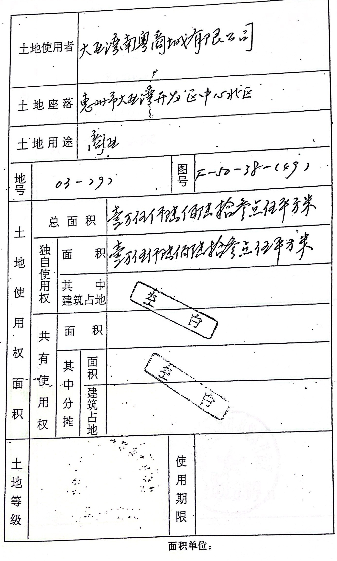 土地使用者 大亚湾南粤商城有限公司
土地座落 惠州市大亚湾开发区中心北区
土地用途 商业
地号 03-292
图号 F-50-38-(49)
土地使用权面积
总面积 壹万伍仟陆佰陆拾叁点伍平方米
独自使用权
面积 壹万伍仟陆佰陆拾叁点伍平方米
其中建筑占地
空白
共有使用权
面积
其中分摊
面积
空白
建筑占地
土地等级
使用期限
面积单位: